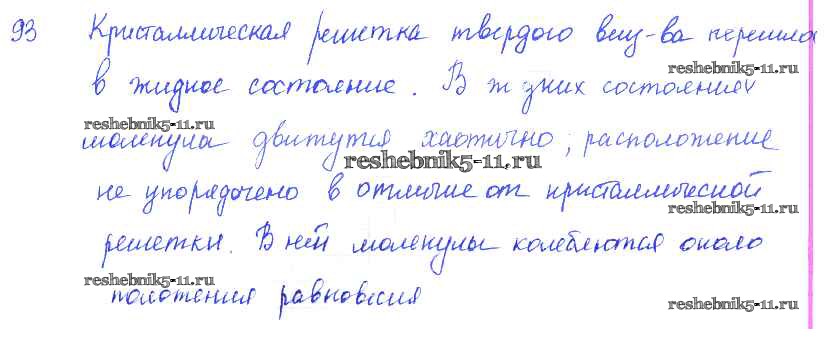 93 Кристаллическая решетка твердого вещ-ва перешла
reshebnik5-11.ru
в жидкое состояние. В жидких состояниях
reshebnik5-11.ru
молекулы движутся хаотично; расположение
reshebnik5-11.ru
не упорядочено в отличие от кристаллической
reshebnik5-11.ru
решетки. В ней молекулы колеблются около
reshebnik5-11.ru
положения равновесия
reshebnik5-11.ru